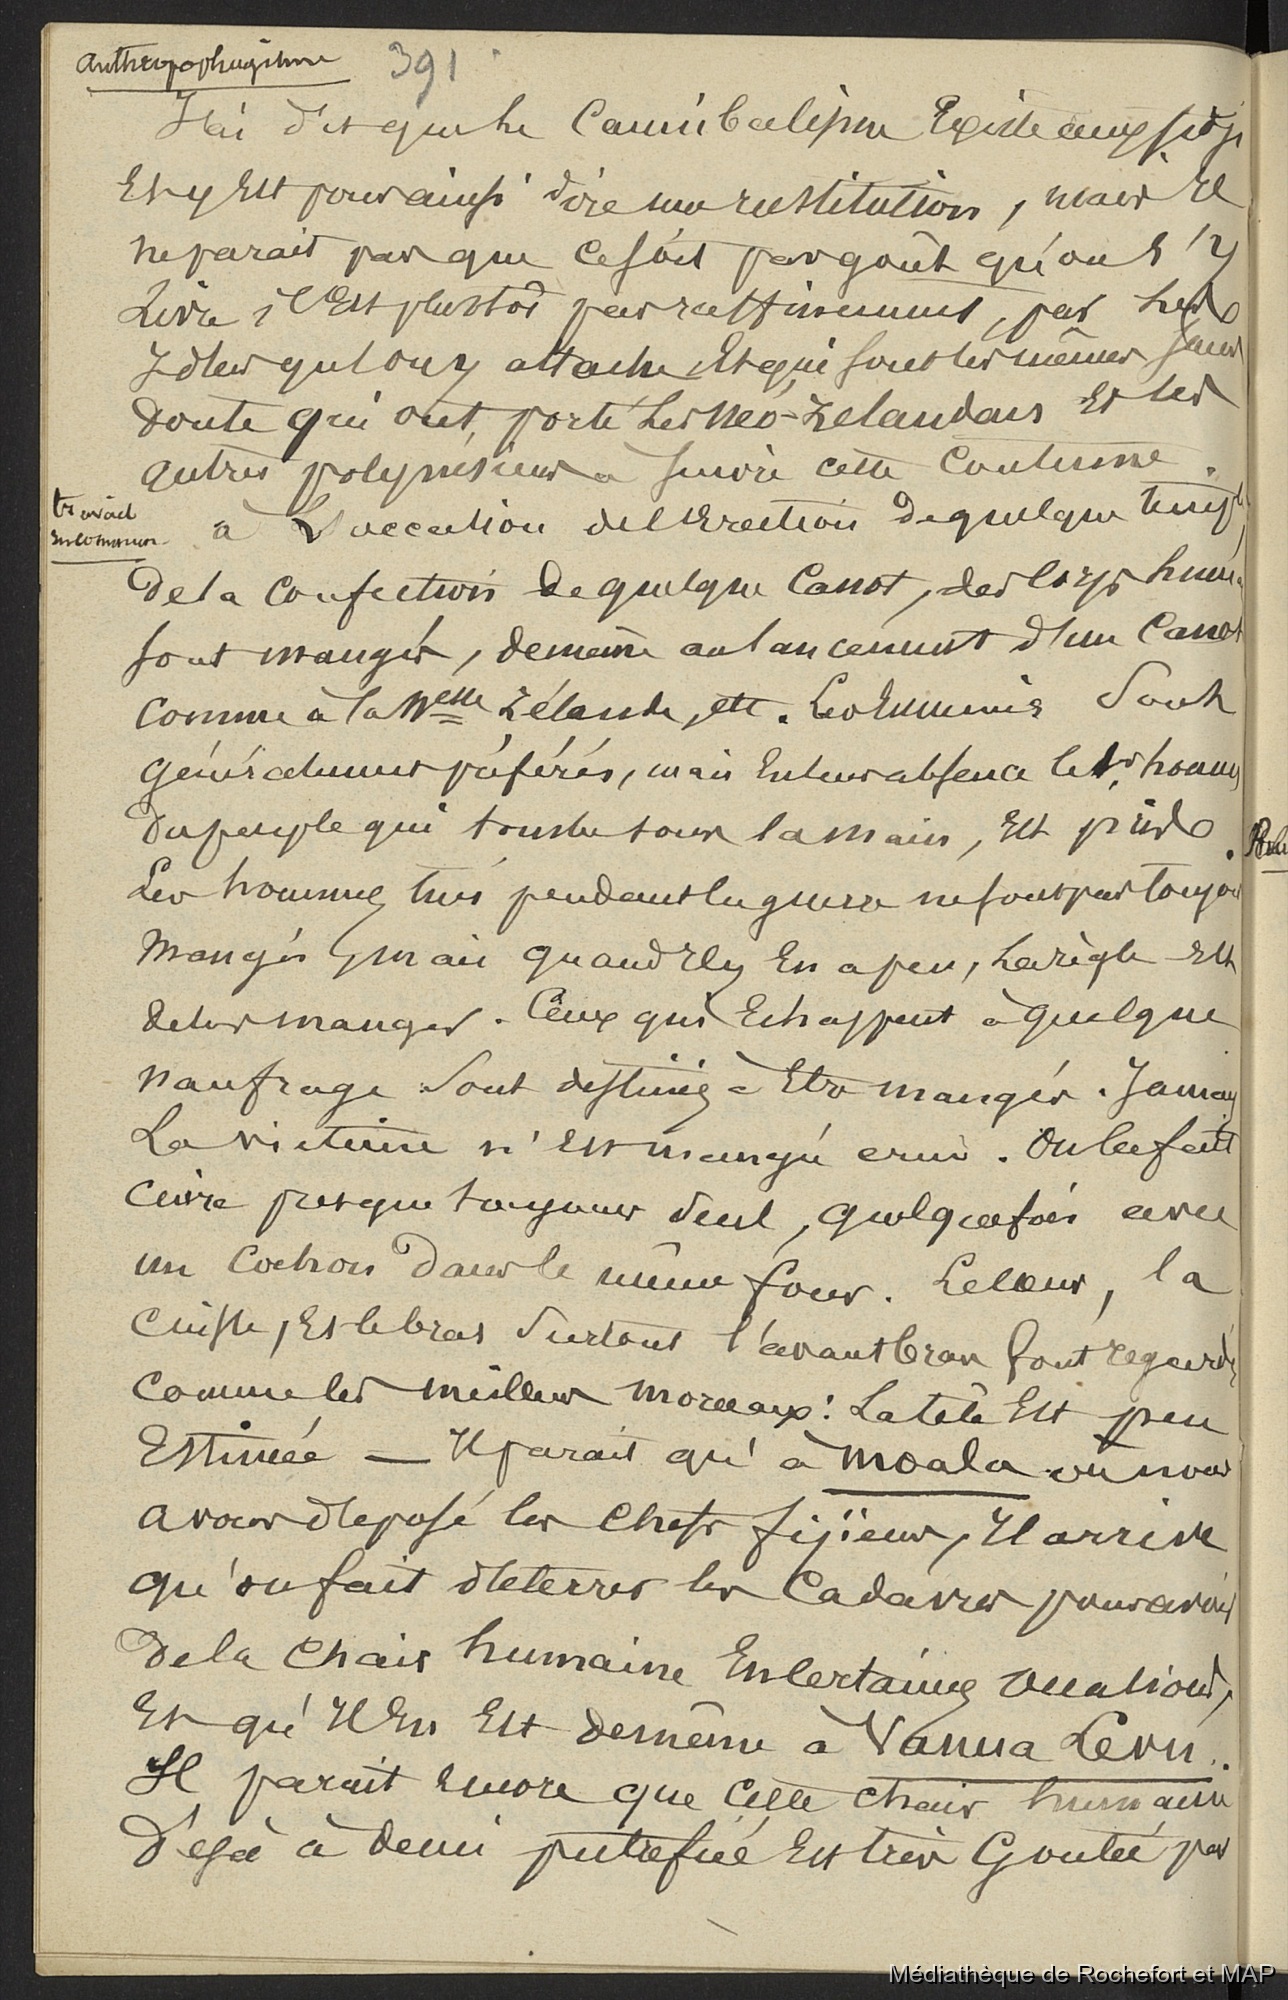 anthropophagisme
391
J'ai dit que le Cannibalisme Existe aux fidji
Et y Est pour ainsi dire une institution, mais Il
ne parait pas que ce soit par goût qu'on s'y
Livre, il Est plustot par raffinement, par les
Idées qu'l'on y attache, Et qui sont les mêmes sans
doute qui ont porté les néo-Zelandais Et les
autres polynésiens a suivre cette Coutume.
travail
en commun
à L'occasion de l'Erection de quelque temple
De la Confection de quelque Canot, des Corps humains
sont mangés, de même au lancement d'un Canot
Comme à la Nelle Zélande, etc. Les Ennemis Sont
généralement préférés, mais En leur absence le 1er homme
du peuple qui tombe sous la main, Est pris.
Les hommes tués pendant la guerre ne sont pas toujours
Mangés, mais quand Il y En a peu, La règle Est
de les manger. Ceux qui Echappent à quelque
naufrage Sont destinés à Etre mangés. Jamais
La victime n'Est mangée crue. On la fait
Cuire presque toujours seul, quelquefois avec
un Cochon Dans le même four. Le Cœur, la
Cuisse, Et le bras Surtout l'avant bras sont regardés
Comme les meilleurs morceaux: La tête Est peu
Estimée — Il parait qu'à Moala où nous
avons déposé les Chefs fijiens, Il arrive
qu'on fait déterrer les Cadavres pour avoir
De la Chair humaine En Certaines occasions,
Et qu'Il En Est de même à Vanua Levu.
Il parait encore que Cette Chair humaine
Déjà à demi putrefiée Est très Goutée par
Médiathèque de Rochefort et MAP